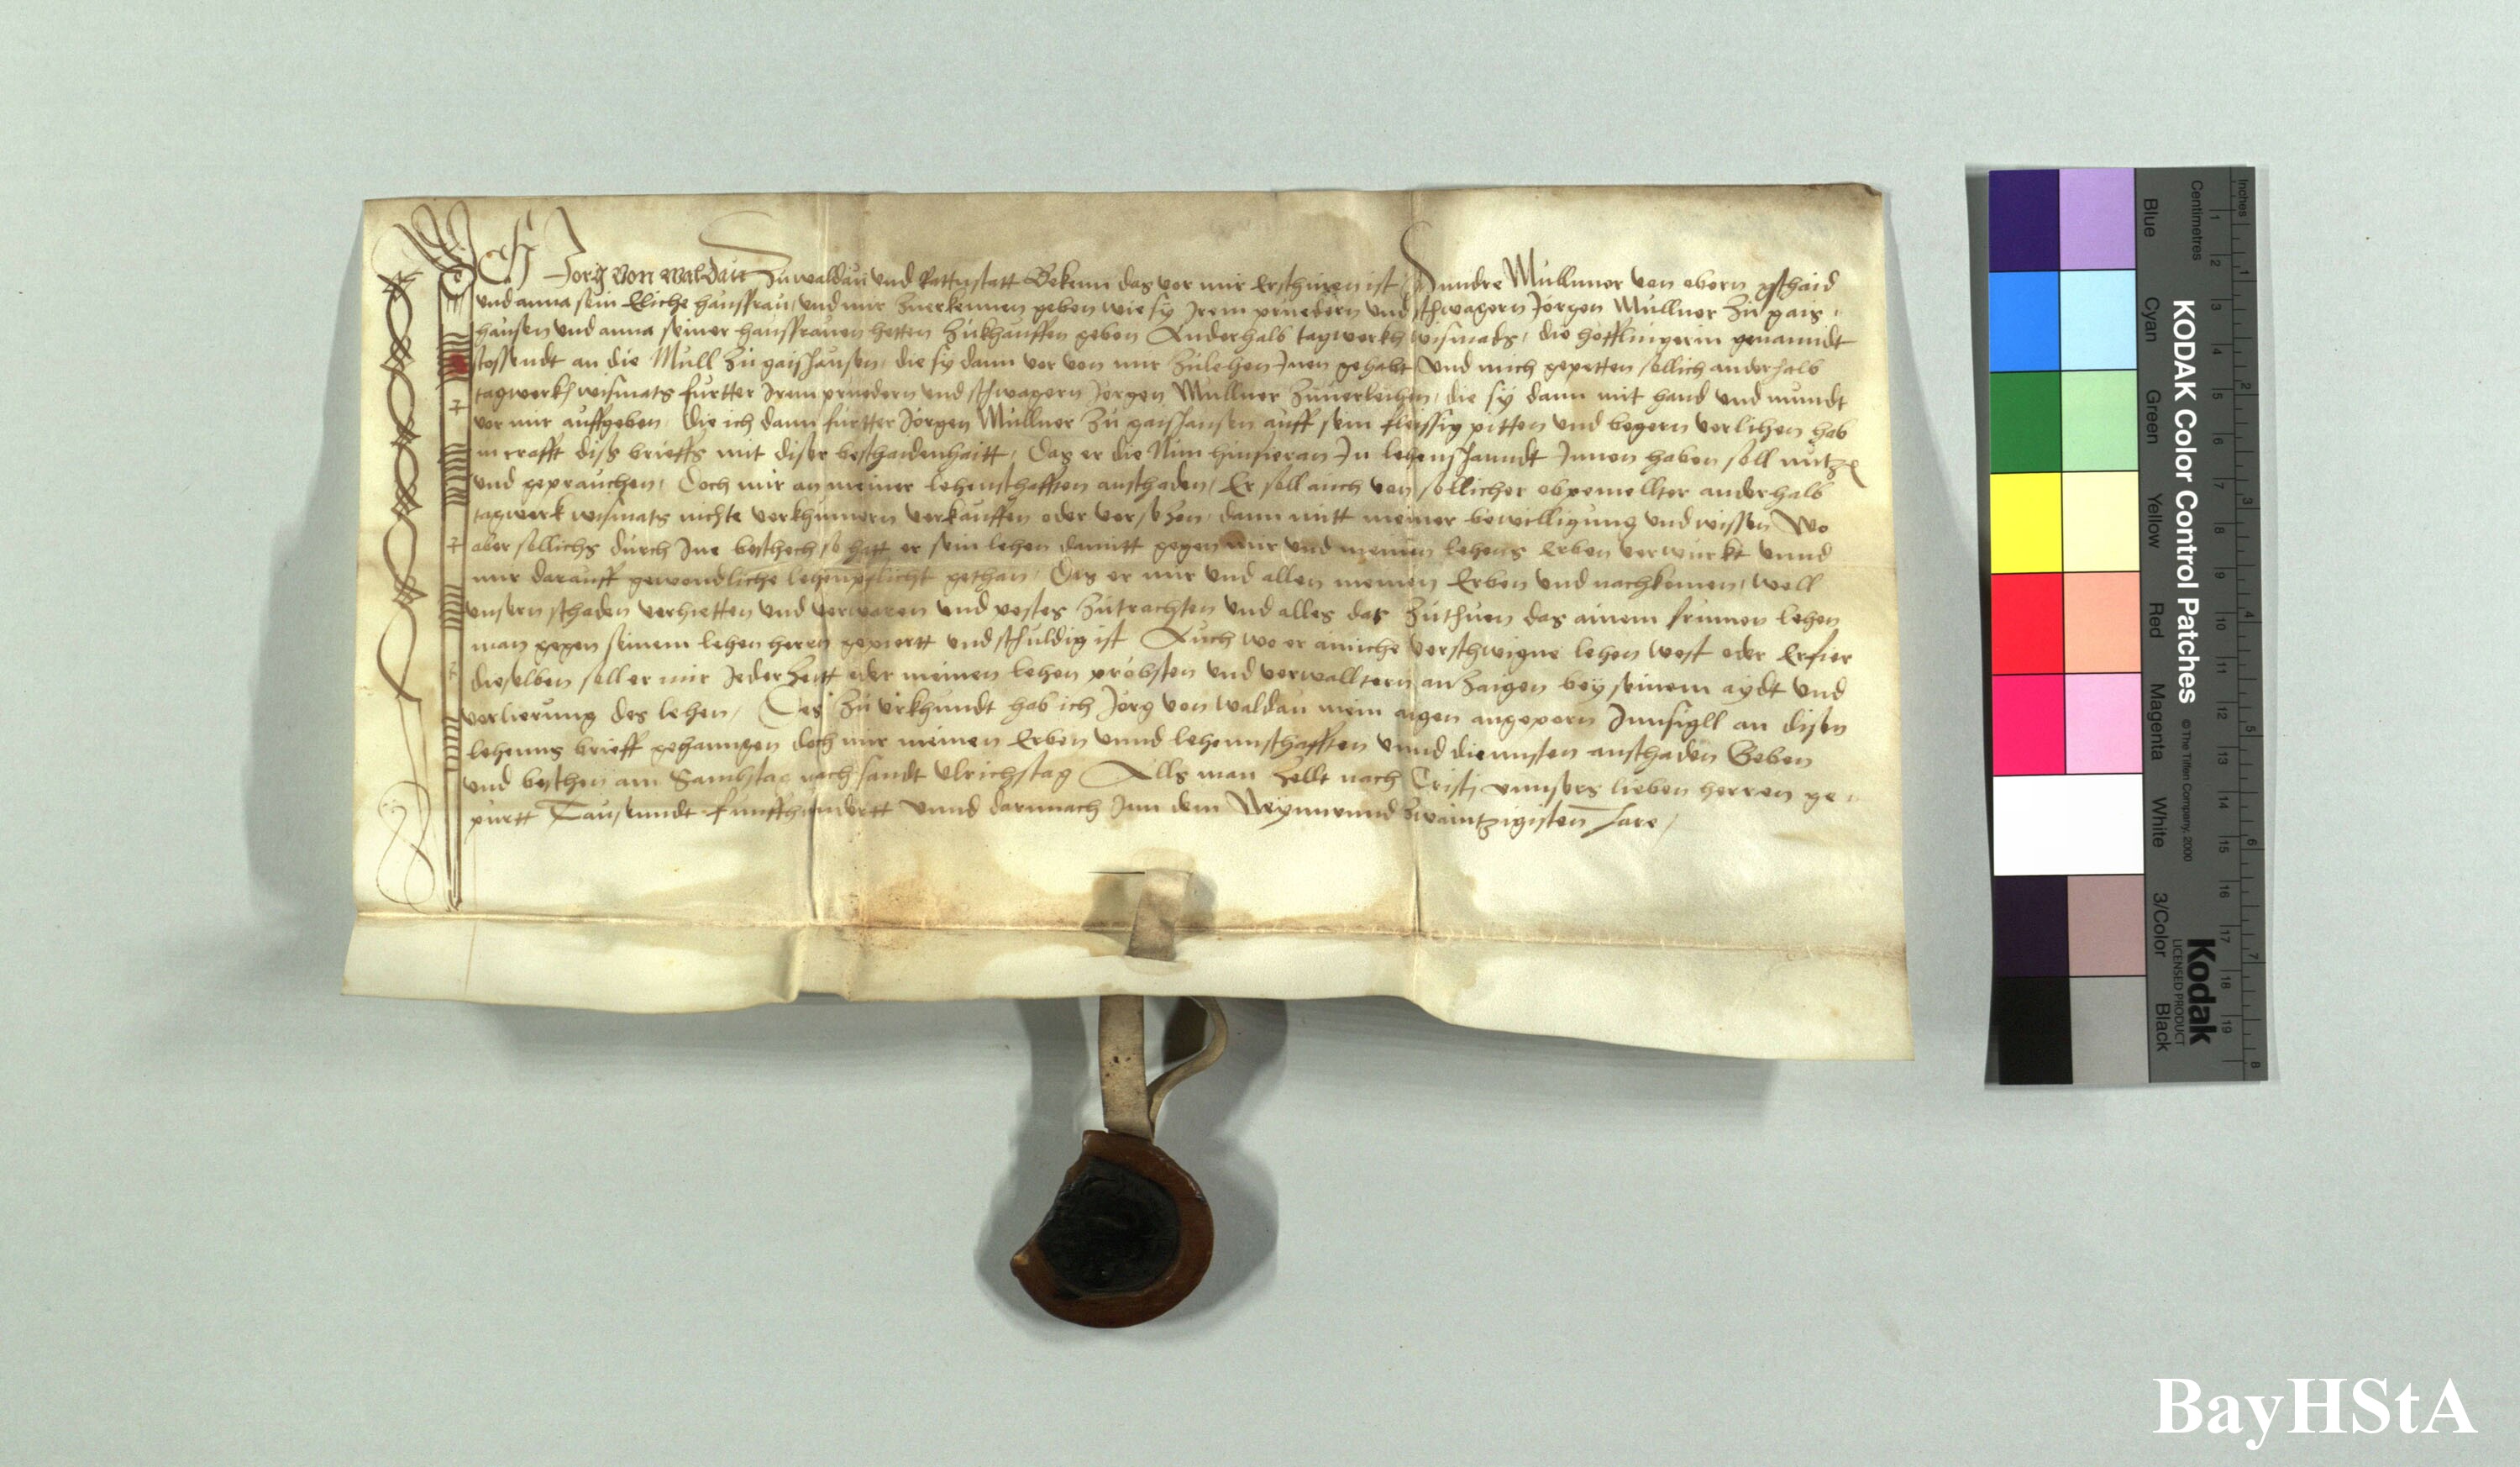 Ich Jorg von waldau zu waldau und Rattnstatt Bekenn das vor mir Erschinen ist Anndre Mullnner von obern gschaid
und anna sein Eliche haussfrau, und mir zuerkennen geben wie sy Irem pruedern und schwagern Jorgen Mullner zu gais
hausen und anna seiner haussfrauen hetten zukhauffen geben Anderhalb tagwerkh wismats, die hofflingerin genanndt
stossendt an die Mull zu gaishausen, die sy dann vor von mir zulehen Inen gehabt und mich gepetten sollich anderhalb
tagwerkh wismats furtter Irem pruedern und schwagern Jorgen Mullner zuuerleihen, die sy dann mit hand und mundt
vor mir auffgeben, Die ich dann furtter Jorgen Mullner zu gaishausen auff sein fleissig pitten und begern verlihen hab
in crafft diss brieffs mit diser beschaidenhaitt, Das er die Nun hinfueran In lehenschanndt Innen haben soll nutzen
und geprauchen, Doch mir an meiner lehenschafften anschaden, Er soll auch von sollicher obgemellter anderhalb
tagwerk wismats nichts verkhumern verkauffen oder versetzen, dann mitt meiner bewilligung und wissen Wo
aber sollichs durch Ine beschech so hatt er sein lehen damitt gegen mir und meinen lehens Erben verwurkt unnd
mir darauff gewondliche lehenpflicht gethan, Das er mir und allen meinen Erben und nachkomen, well
unsern schaden verhietten und verwaren und pestes zutrachten und alles das zuthuen das ainem frumen lehen
man gegen seinem lehen herrn gepiertt und schuldig ist Auch wo er ainiche verschwigne lehen west oder Erfier
dieselben soll er mir Jeder Zeitt oder meinen lehen probsten und verwalltern anzaigen bey seinem aydt und
verlierung des lehen, Des zu urkhundt hab ich Jorg von waldau mein aigen angeporn Innsigll an disen
lehenns brieff gehanngen doch mir meinen Erben unnd lehennschafften unnd diennsten anschaden Geben
und beschehen am Sambstag nach sandt Ulrichstag Alls man zellt nach Cristi unnsers lieben herren ge
purtt Tausenndt funffhundertt unnd darnnach Inn dem Neynnunnd zwaintzigisten Jare
Inches
Centimetres
KODAK Color Control Patches
© The Tiffen Company, 2000
Kodak
LICENSED PRODUCT
Blue
Cyan
Green
Yellow
Red
Magenta
White
3/Color
Black
1 2 3 4 5 6 7 8 9 10 11 12 13 14 15 16 17 18 19
1 2 3 4 5 6 7 8
BayHStA